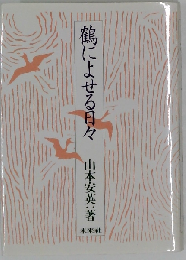 鶴によせる日々
山本安英著
未来社